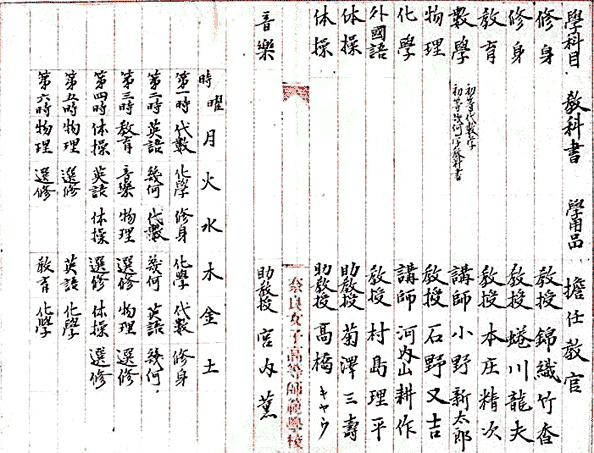 學科目 教科書 學用品 擔任教官
修身 教授 錦織竹香
修身 教授 蜷川龍夫
教育 教授 本庄精次
數學 初等代數学 講師 小野新太郎
初等幾何学教科書
物理 教授 石野又吉
化學 講師 河内山耕作
外國語 教授 村島理平
体操 助教授 菊澤三壽
体操 助教授 高橋キャウ
奈良女子高等師範學校
音樂 助教授 宮内薫
時曜 月 火 水 木 金 土
第一時 代數 化學 修身 化學 代數 修身
第二時 英語 幾何 代數 幾何 英語 幾何
第三時 教育 音樂 物理 選修 物理 選修
第四時 体操 英語 体操 選修 体操 選修
第五時 物理 選修 英語 化學
第六時 物理 選修 教育 化學